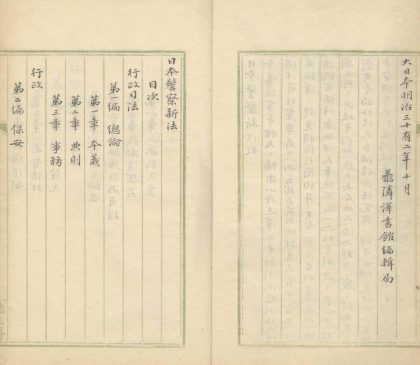 大日本明治三十有二年十月
善隣譯書館編輯局
日本警察新法
目次
行政司法
第一編 總論
第一章 本義
第二章 典則
第三章 事務
行政
第二編 保安